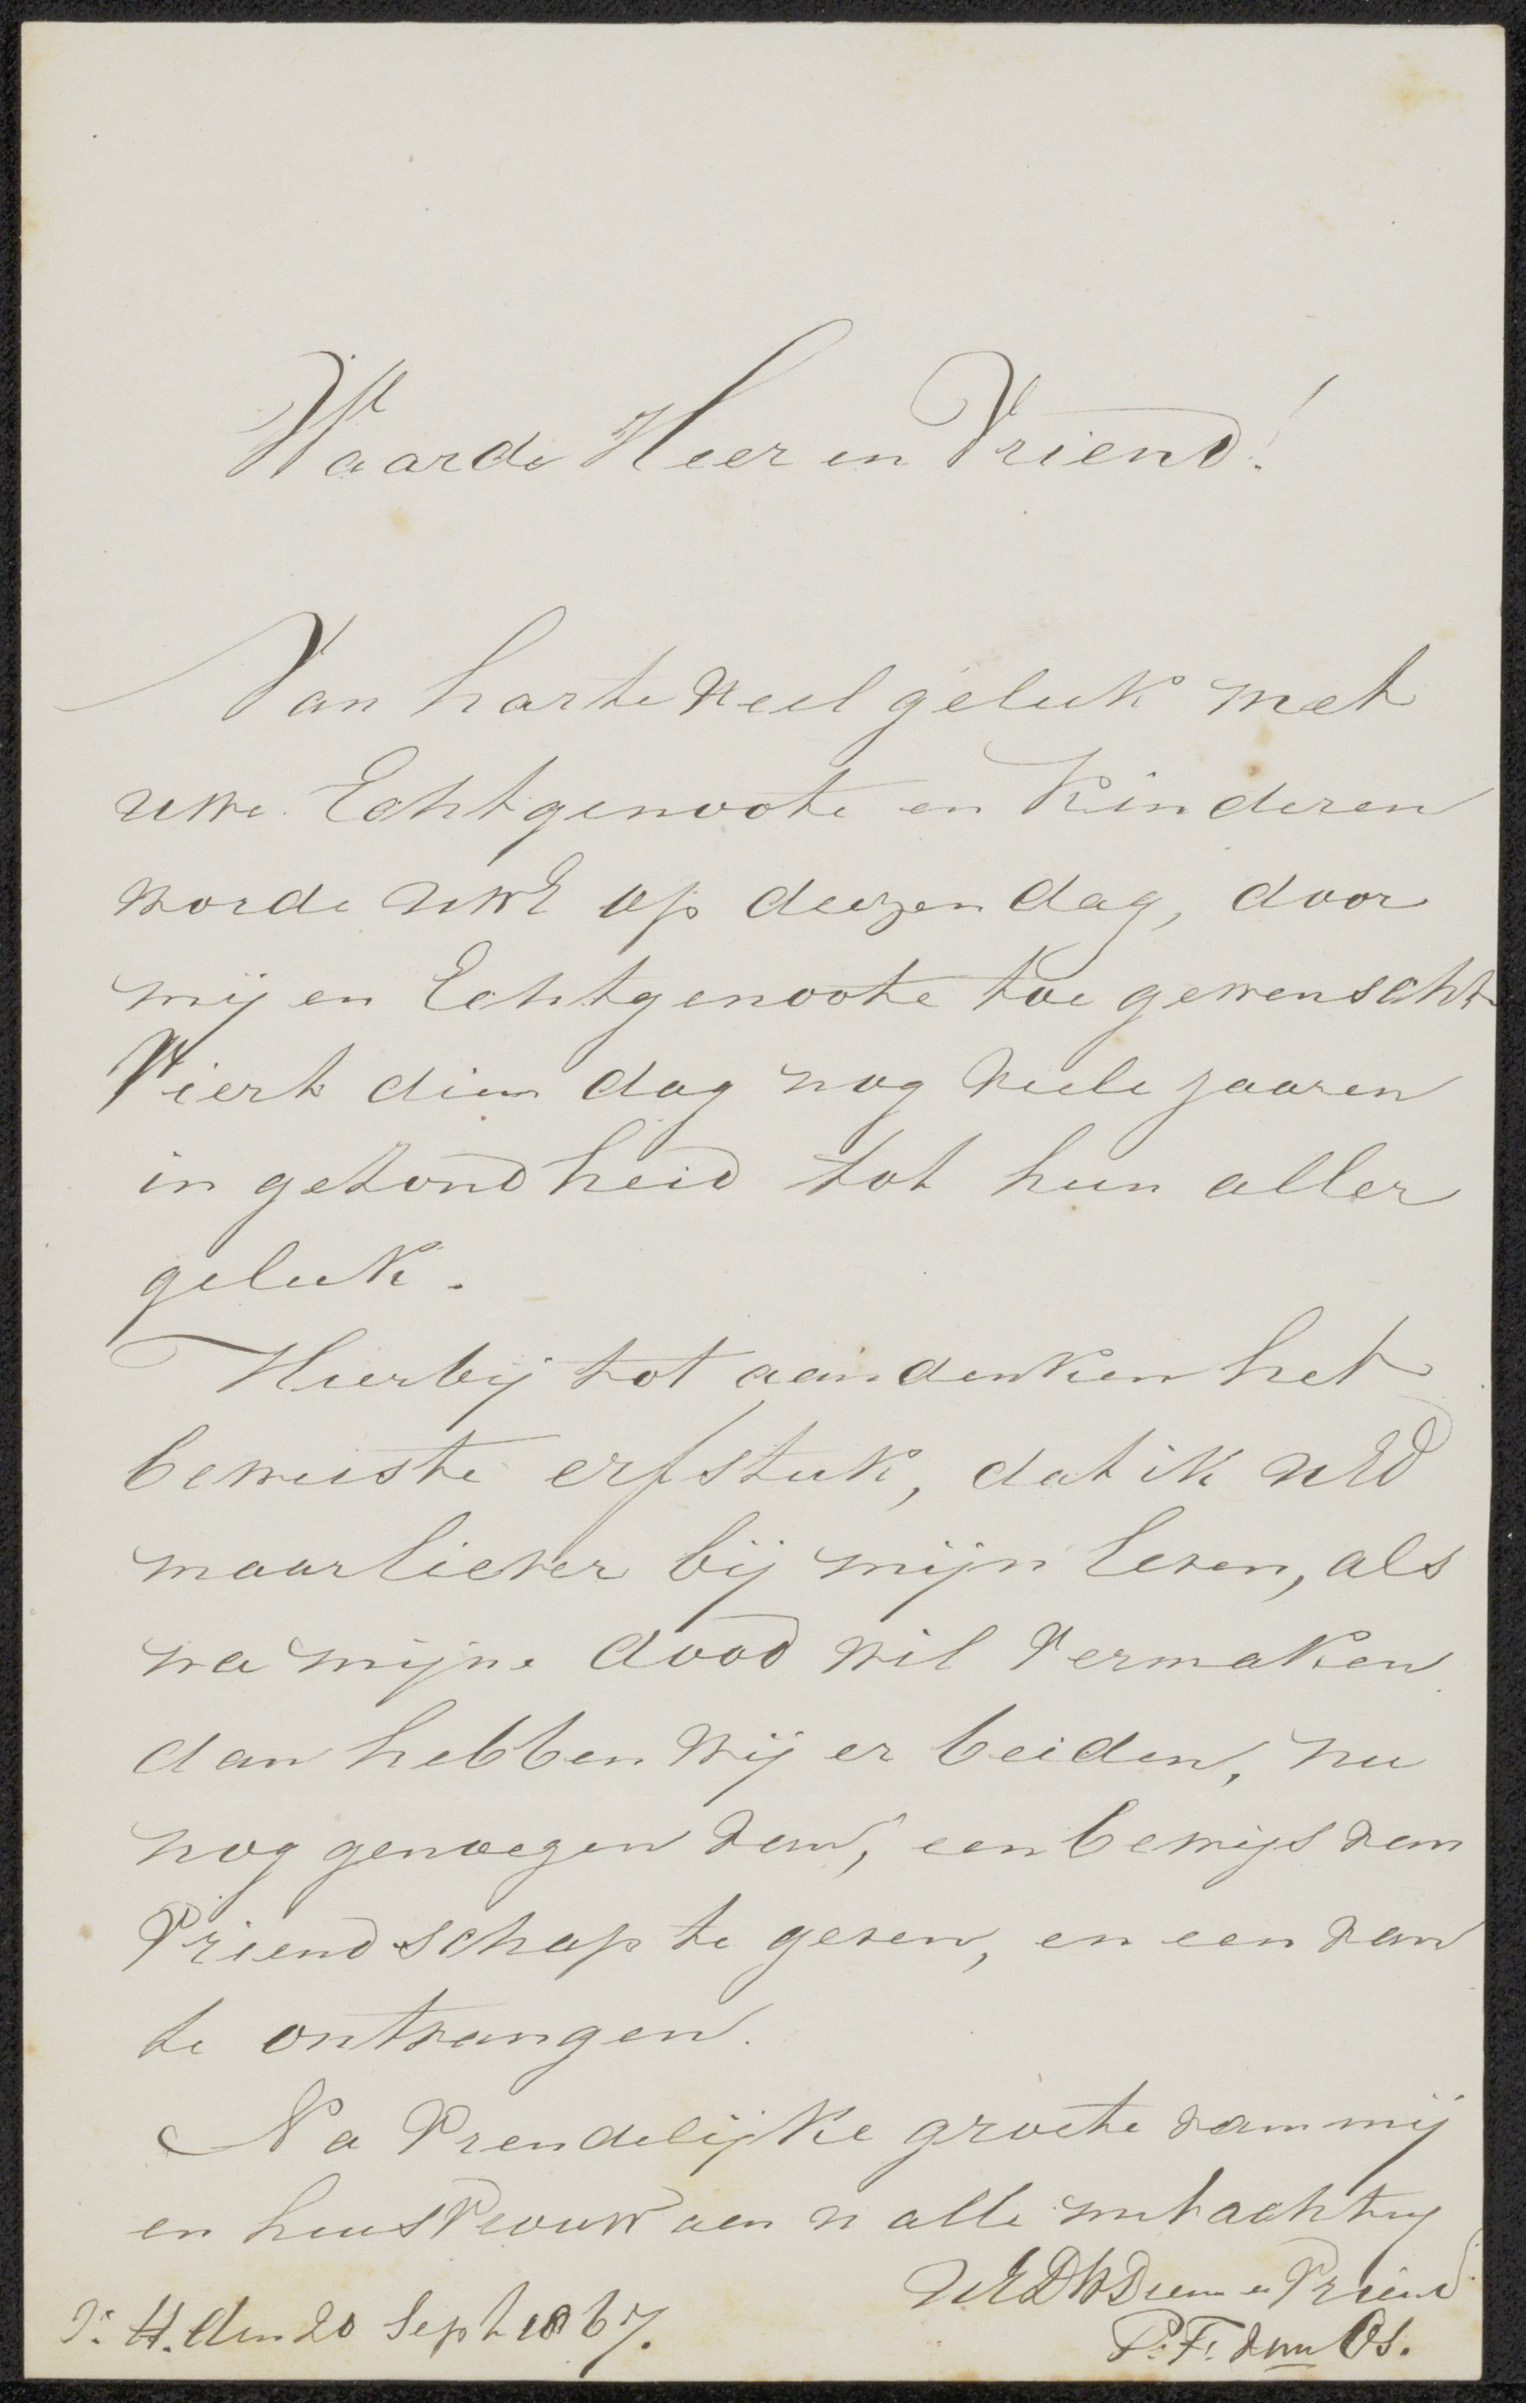 Waarde Heer en Vriend!
Van harte veel geluk met
uwe Echtgenoote en Kinderen
worde UWE op deezen dag, door
mij en Echtgenoote toe gewenscht
Viert dien dag nog veele jaaren
in gezondheid tot hun aller
geluk.
Hierbij tot aandenken het
bewuste erfstuk, dat ik UED
maar liever bij mijn leven, als
na mijne dood wil vermaken
dan hebben wij er beiden, nu
nog genoegen van, een bewijs van
Vriendschap te geven, en een van
te ontvangen.
Na Vrendelijke groete van mij
en huisvrouw aan u alle met achting
UEDWDien en Vriend
H. den 20 Sept 1867.
P. F. van Os.